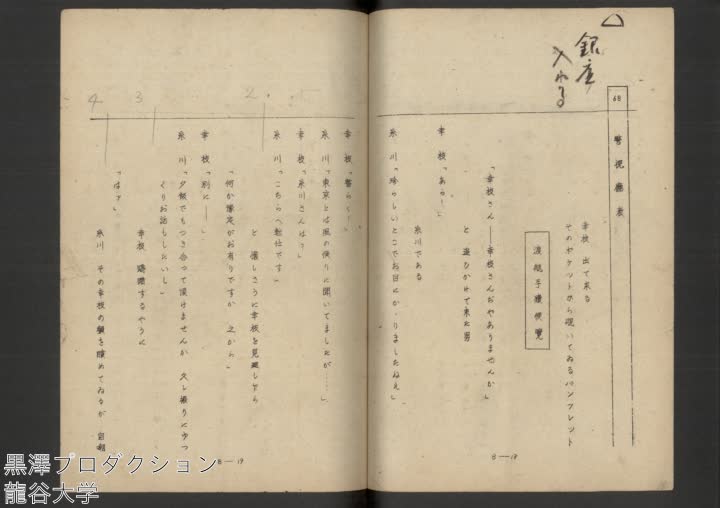 銀座
入れる
68
警視廳表
幸枝 出て来る
そのポケットから覗いてゐるパンフレット
「幸枝さん――幸枝さんぢやありませんか」
と 追ひかけて来た男
幸枝「あら!」
糸川である
糸川「珍らしいとこでお目にかゝりましたねえ」
8―18
幸枝「暫らく!」
糸川「東京とは風の便りに聞いてましたが……」
幸枝「糸川さんは?」
糸川「こちらへ転任です」
と 懐しさうに幸枝を見
「何か豫定がお有りですか 之から」
幸枝「別に――」
糸川「夕飯でもつき合つて頂けませんか 久し振りにゆつ
くりお話もしたいし」
幸枝 躊躇するやうに
「は?」
糸川 その幸枝の顔を眺めてゐるが
2
3
4
8―19
黒澤プロダクション
龍谷大学